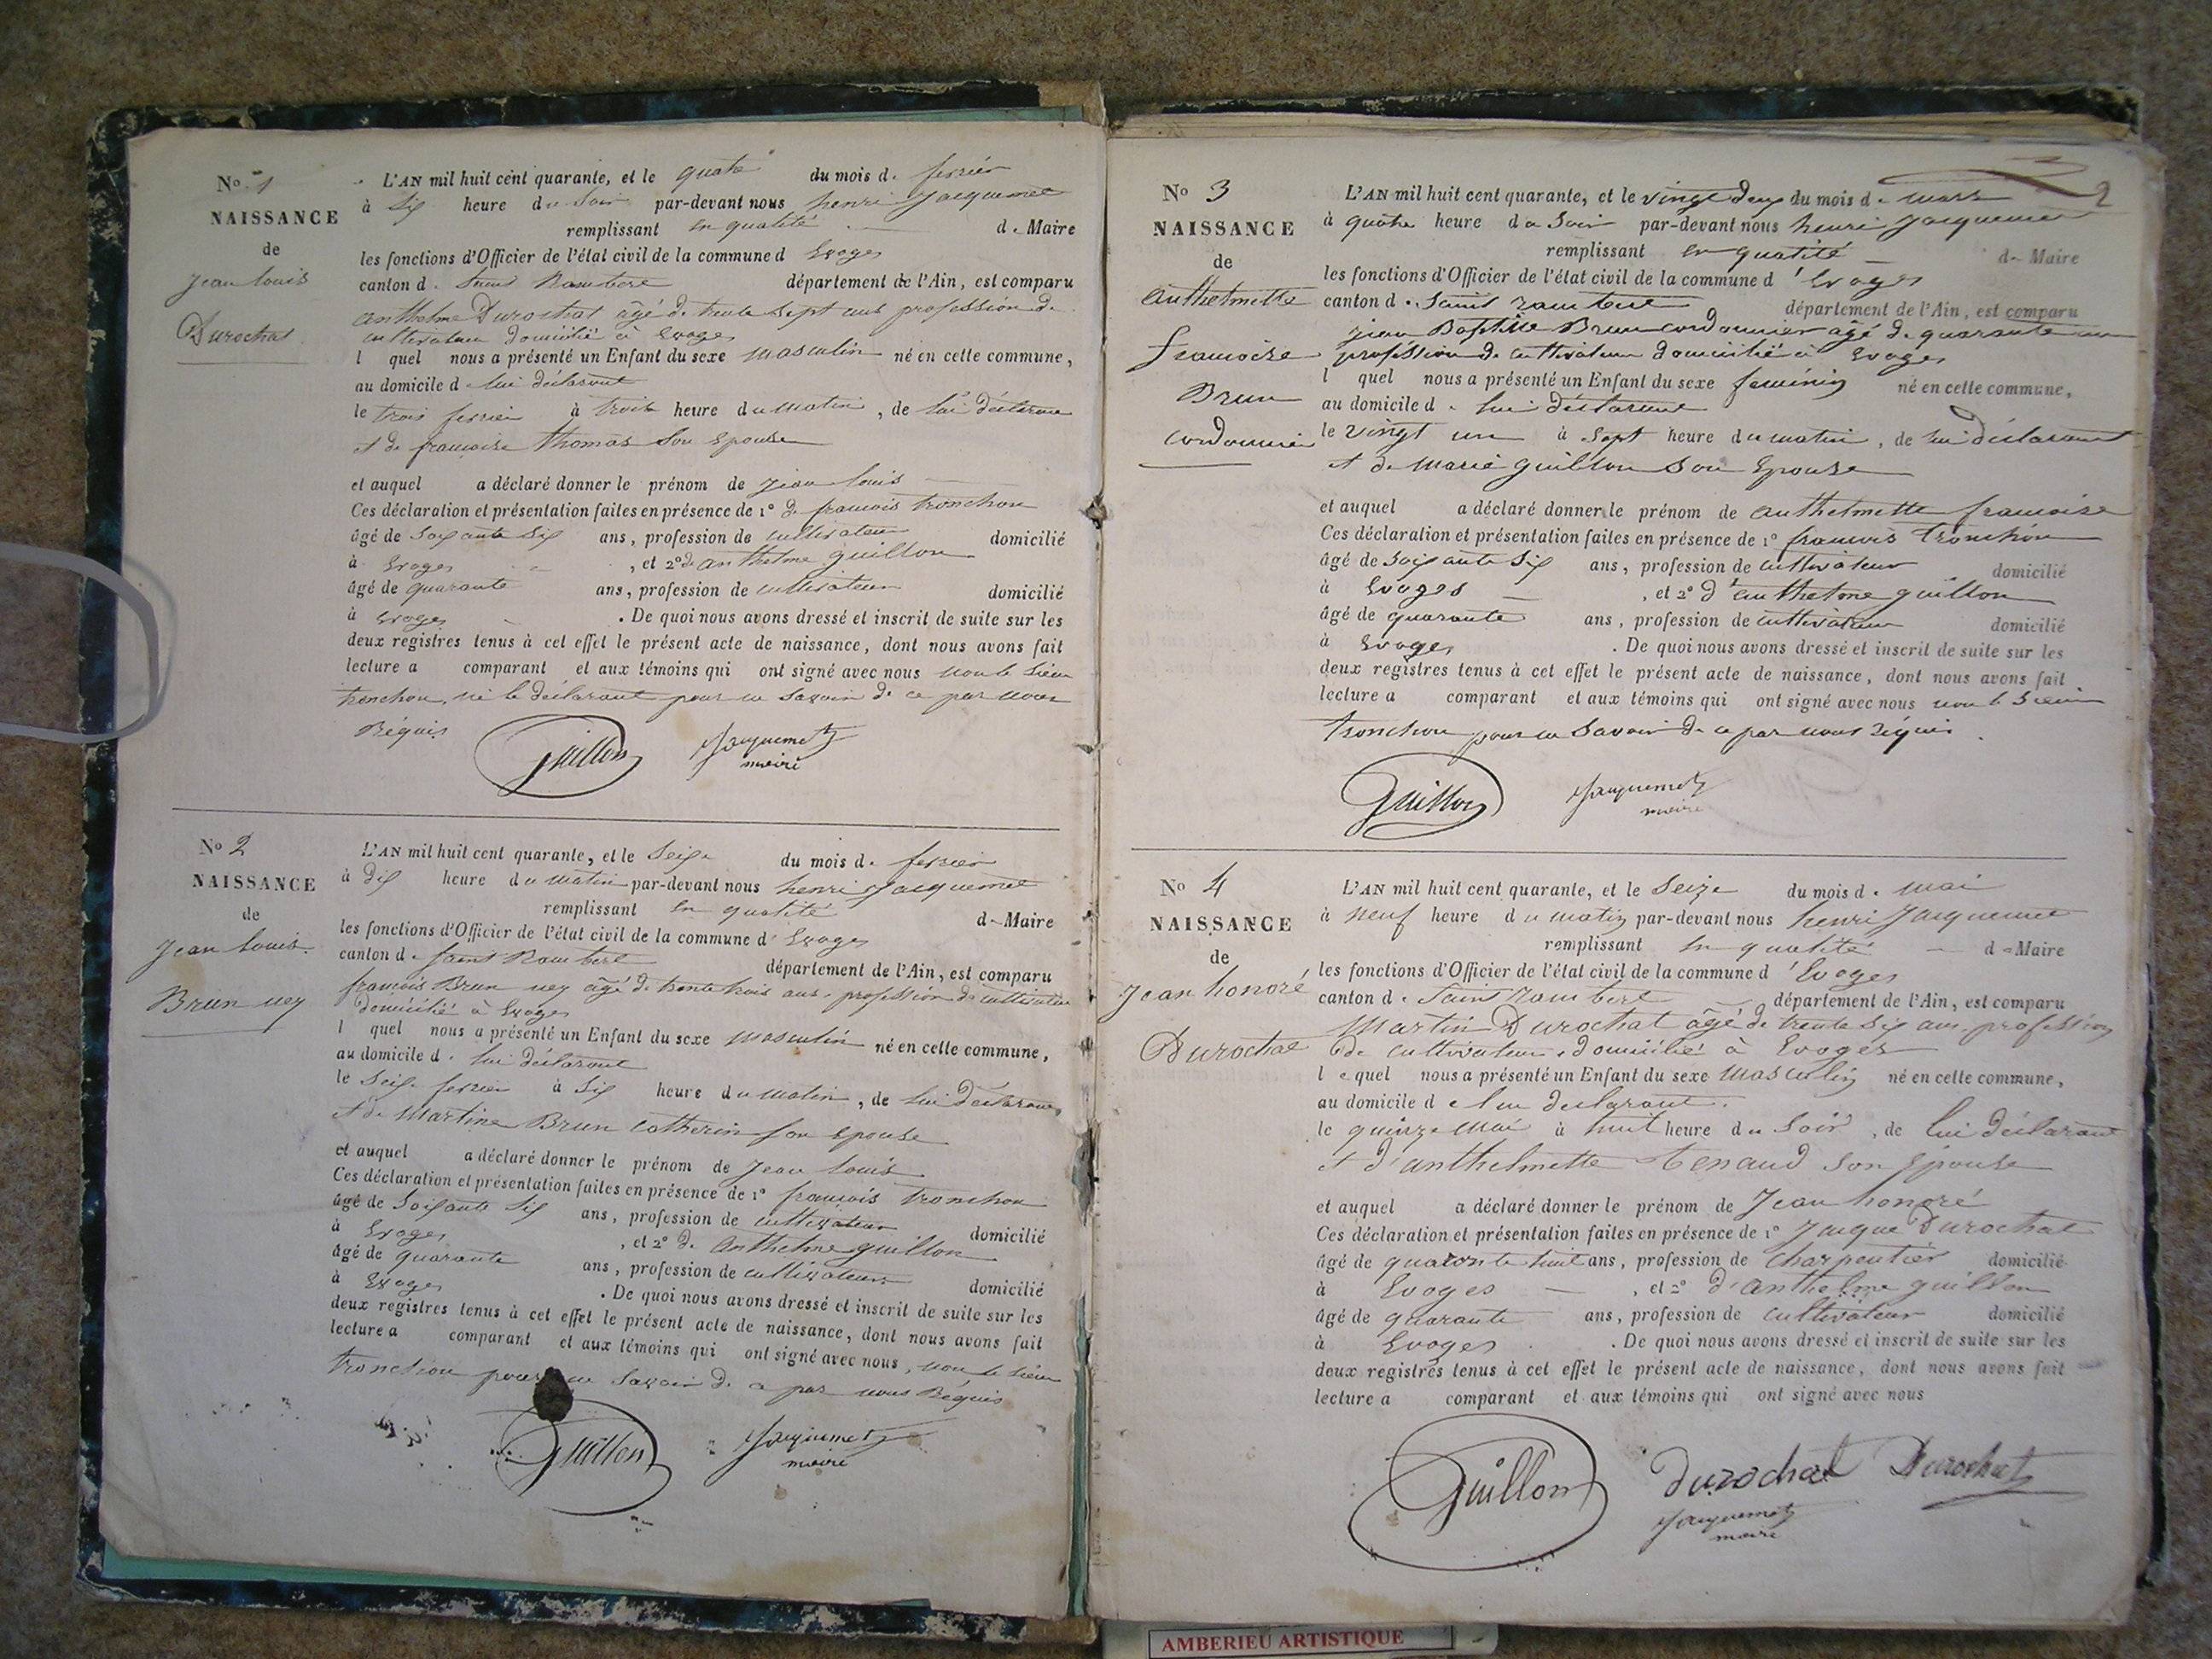 No 1
NAISSANCE
de
Jean Louis
Durochat
L'AN mil huit cent quarante, et le quatre du mois de fevrier
à Six heure du Soir par-devant nous henri Jacquemet
remplissant en qualité de Maire
les fonctions d'Officier de l'état civil de la commune d Evoges
canton de Saint Rambert département de l'Ain, est comparu
anthelme Durochat âgé de trente sept ans profession de
cultivateur domicilié à Evoges
l quel nous a présenté un Enfant du sexe masculin né en cette commune,
au domicile de lui déclarant
le trois fevrier à trois heure du matin, de lui déclarant
et de francoise thomas Son Epouse
et auquel a déclaré donner le prénom de Jean Louis
Ces déclaration et présentation faites en présence de 1° de francois tronchon
âgé de Soixante Six ans, profession de cultivateur domicilié
à Evoges, et 2° d anthelme guillon
âgé de quarante ans, profession de cultivateur domicilié
à Evoges. De quoi nous avons dressé et inscrit de suite sur les
deux registres tenus à cet effet le présent acte de naissance, dont nous avons fait
lecture a comparant et aux témoins qui ont signé avec nous non le Sieur
tronchon, ni le déclarant pour ne Savoir de ce par nous
Réquis
Guillon Jacquemet
maire
No 2
NAISSANCE
de
Jean Louis
Brun ney
L'AN mil huit cent quarante, et le Seize du mois de fevrier
à Dix heure du matin par-devant nous henri Jacquemet
remplissant en qualité de Maire
les fonctions d'Officier de l'état civil de la commune d' Evoges
canton de Saint Rambert département de l'Ain, est comparu
francois Brun ney âgé de trente trois ans, profession de cultivateur
Domicilié à Evoges
l quel nous a présenté un Enfant du sexe masculin né en cette commune,
au domicile de lui déclarant
le Seize fevrier à Six heure du matin, de lui déclarant
et de Martine Brun Catherin Son Epouse
et auquel a déclaré donner le prénom de Jean Louis
Ces déclaration et présentation faites en présence de 1° francois tronchon
âgé de Soixante Six ans, profession de cultivateur domicilié
à Evoges, et 2° de anthelme guillon
âgé de quarante ans, profession de cultivateur domicilié
à Evoges. De quoi nous avons dressé et inscrit de suite sur les
deux registres tenus à cet effet le présent acte de naissance, dont nous avons fait
lecture a comparant et aux témoins qui ont signé avec nous, non le Sieur
tronchon pour ne Savoir de ce par nous Réquis
Guillon Jacquemet
maire
2
No 3
NAISSANCE
de
anthelmette
francoise
Brun
cordonnier
L'AN mil huit cent quarante, et le vingt deux du mois de mars
à quatre heure du Soir par-devant nous henri Jacquemet
remplissant en qualité de Maire
les fonctions d'Officier de l'état civil de la commune d' Evoges
canton de Saint rambert département de l'Ain, est comparu
jean Baptiste Brun cordonnier âgé de quarante un
profession de cultivateur domicilié à Evoges
l quel nous a présenté un Enfant du sexe feminin né en cette commune,
au domicile de lui déclarant
le vingt un à Sept heure du matin, de lui déclarant
et de marie guillon Son Epouse
et auquel a déclaré donner le prénom de anthelmette francoise
Ces déclaration et présentation faites en présence de 1° francois Tronchon
âgé de Soixante Six ans, profession de cultivateur domicilié
à Evoges, et 2° d'anthelme guillon
âgé de quarante ans, profession de cultivateur domicilié
à Evoges. De quoi nous avons dressé et inscrit de suite sur les
deux registres tenus à cet effet le présent acte de naissance, dont nous avons fait
lecture a comparant et aux témoins qui ont signé avec nous non le Sieur
tronchon pour ne Savoir de ce par nous réquis
Guillon Jacquemet
maire
No 4
NAISSANCE
de
Jean honoré
Durochat
L'AN mil huit cent quarante, et le Seize du mois de mai
à neuf heure du matin par-devant nous henri Jacquemet
remplissant en qualité de Maire
les fonctions d'Officier de l'état civil de la commune d' Evoges
canton de Saint rambert département de l'Ain, est comparu
Martin Durochat âgé de trente Six ans, profession
de cultivateur, domicilié à Evoges
le quel nous a présenté un Enfant du sexe masculin né en cette commune,
au domicile de lui déclarant.
le quinze mai à huit heure du Soir, de lui déclarant
et d'anthelmette tenaud Son épouse
et auquel a déclaré donner le prénom de Jean honoré
Ces déclaration et présentation faites en présence de 1° Jacque Durochat
âgé de quarante huit ans, profession de charpentier domicilié
à Evoges, et 2° d'anthelme guillon
âgé de quarante ans, profession de cultivateur domicilié
à Evoges. De quoi nous avons dressé et inscrit de suite sur les
deux registres tenus à cet effet le présent acte de naissance, dont nous avons fait
lecture a comparant et aux témoins qui ont signé avec nous
Guillon durochat Durochat
Jacquemet
maire
AMBERIEU ARTISTIQUE